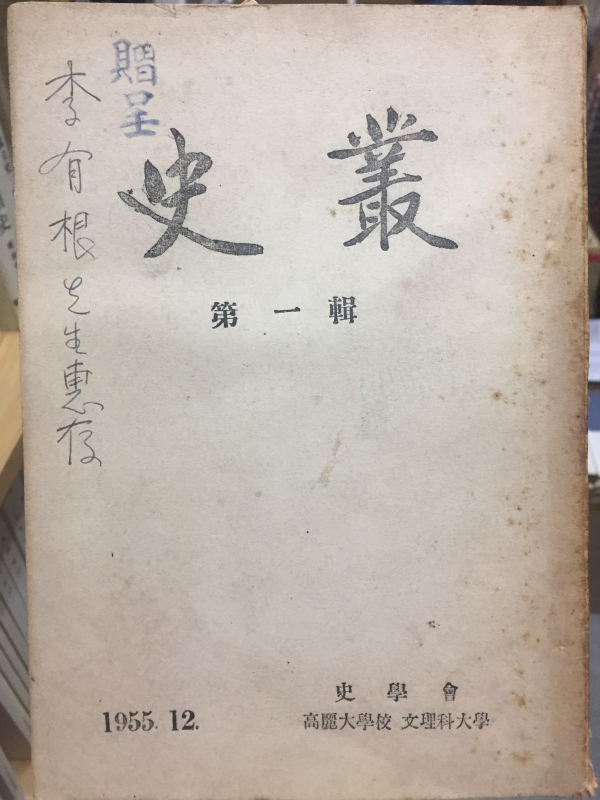 贈呈
李有根先生惠存
史叢
第一輯
1955. 12.
史學會
高麗大學校 文理科大學